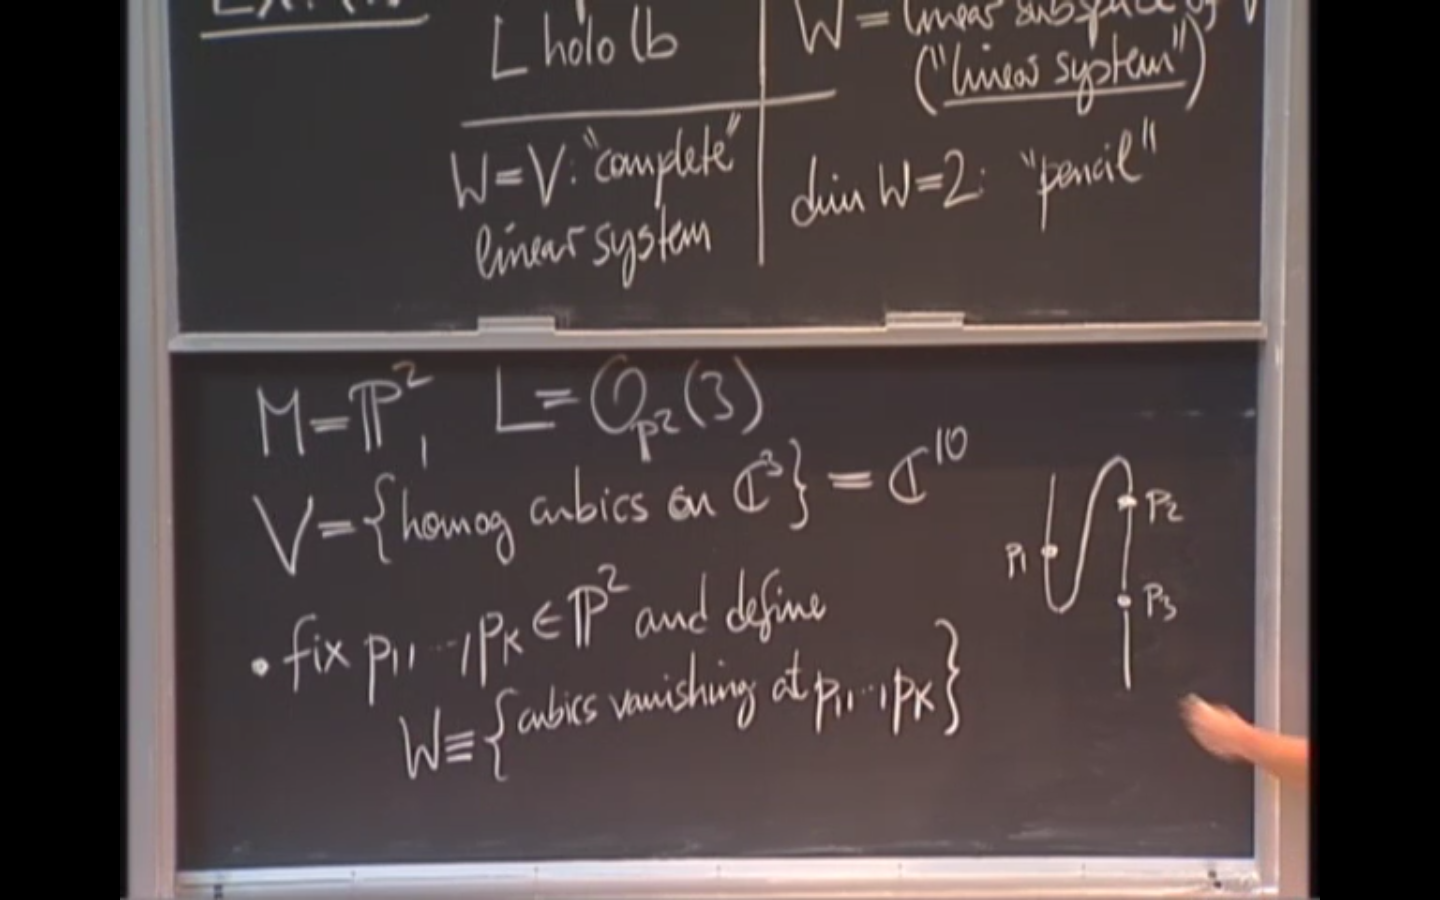 L holo lb
W = linear subspace of V
("linear system")
W=V: "complete"
linear system
dim W=2: "pencil"
M=ℙ², L=𝒪_ℙ²(3)
V={homog cubics on ℂ³} = ℂ¹⁰
• fix p₁,...,pₖ ∈ ℙ² and define
W≡{cubics vanishing at p₁,...,pₖ}
p₁
p₂
p₃